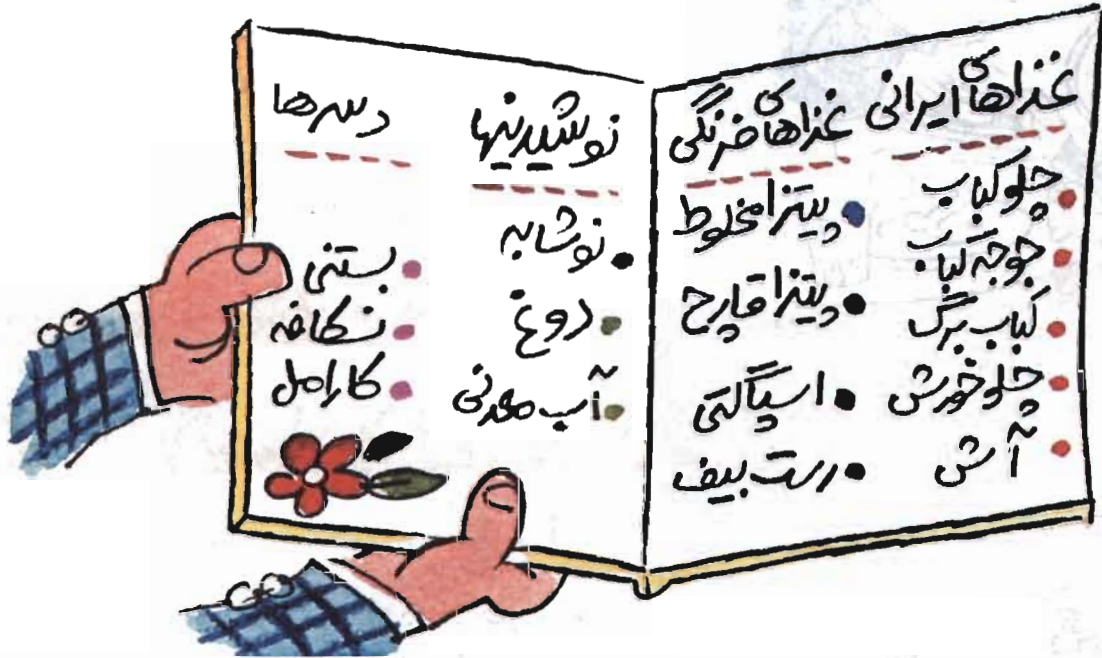 غذاهای ایرانی
چلوکباب
جوجه کباب
کباب برگ
چلوخورش
آش
غذاهای فرنگی
پیتزا مخلوط
پیتزا قارچ
اسپاگتی
رست بیف
نوشیدنیها
نوشابه
دوغ
آب معدنی
دسرها
بستنی
نسکافه
کارامل